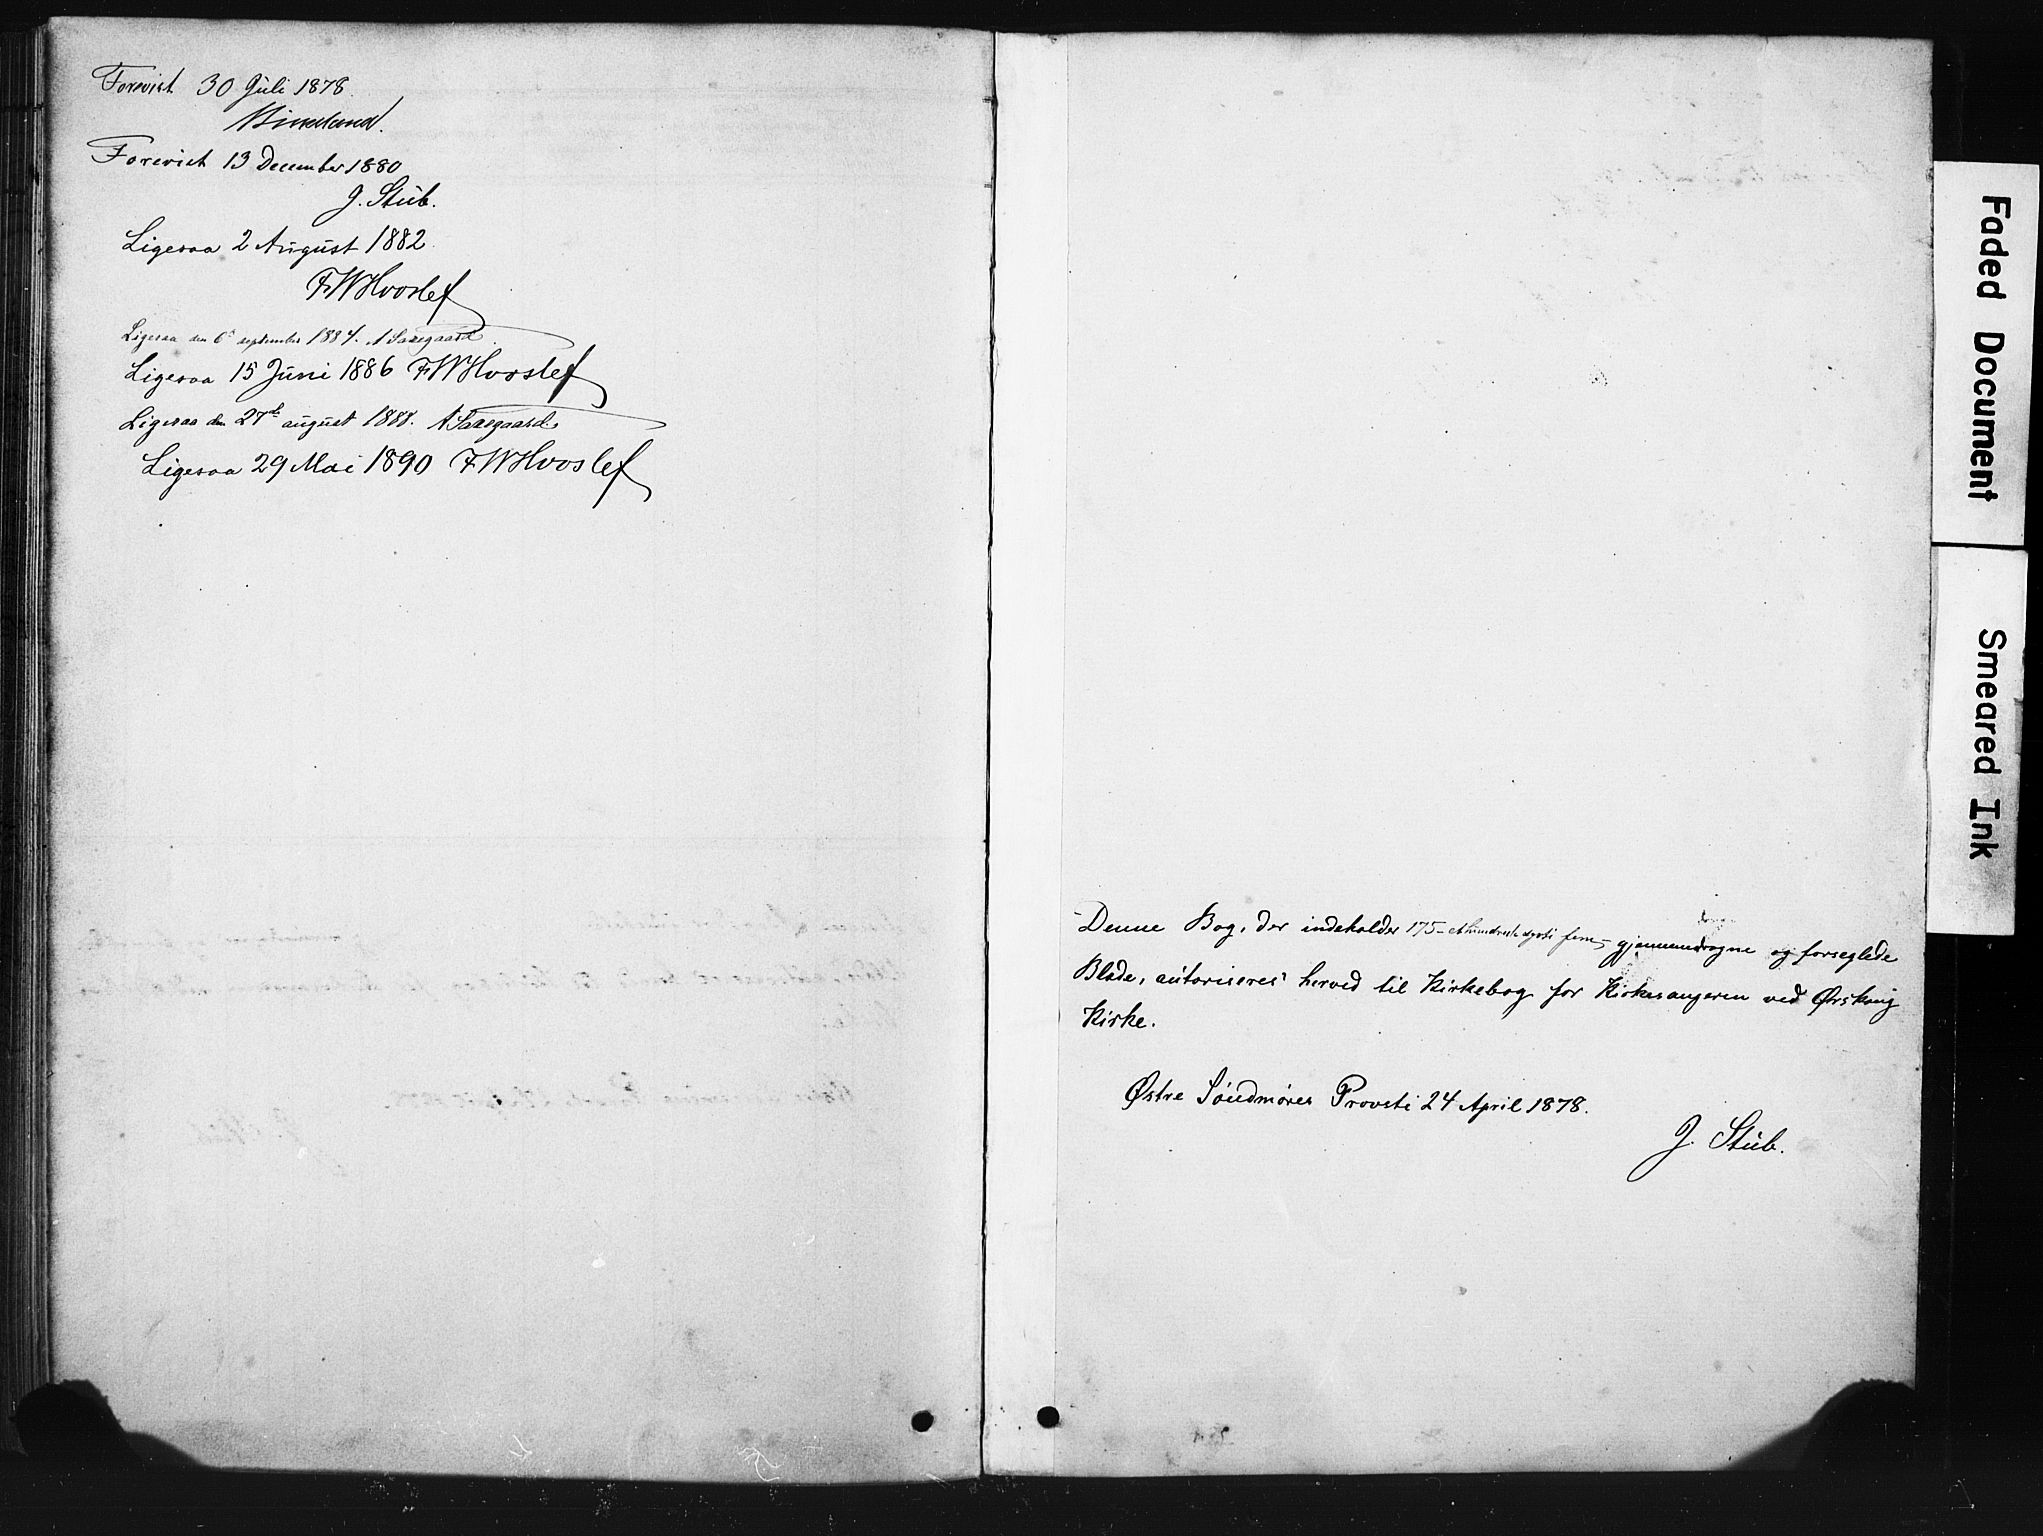 Forevist 30 Juli 1878.
Birkeland.
Forevist 13 December 1880
J. Stub.
Ligesaa 2 August 1882
FWHvoslef
Ligesaa den 6te september 1884. N Saxegaard
Ligesaa 15 Juni 1886 FWHvoslef
Ligesaa den 27de august 1888. N Saxegaard.
Ligesaa 29 Mai 1890 FWHvoslef
Denne Bog, der indeholder 175 - fem - gjennemdragne og forseglede
Blade, autoriseres herved til Kirkebog for Kirkesangeren ved Ørskoug
Kirke.
Østre Søndmøres Provsti 24 April 1878.
J. Stub.
Faded Document
Smeared Ink